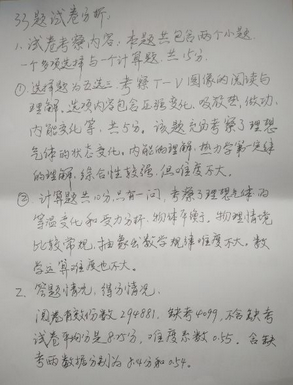 33题试卷分析:
1. 试卷考察内容: 本题共包含两个小题
一个多项选择与一个计算题, 共15分.
① 选择题为五选三, 考察T-V图像的阅读与
理解, 选项内容包含压强变化, 吸放热, 做功,
内能变化等, 共5分. 该题充分考察了理想
气体的状态变化. 内能的理解, 热力学第一定律
的理解, 综合性较强, 但难度不大.
② 计算题共10分只有一问, 考察了理想气体的
等温变化和受力分析. 物体平衡. 物理情境
比较常规, 抽象出数学规律难度不大. 数
学运算难度也不大.
2. 答题情况, 得分情况.
阅卷有效份数 294881. 缺考4099, 不含缺考
试卷平均分是8.25分, 难度系数0.55. 含缺
考两数据分别为8.4分和0.54.